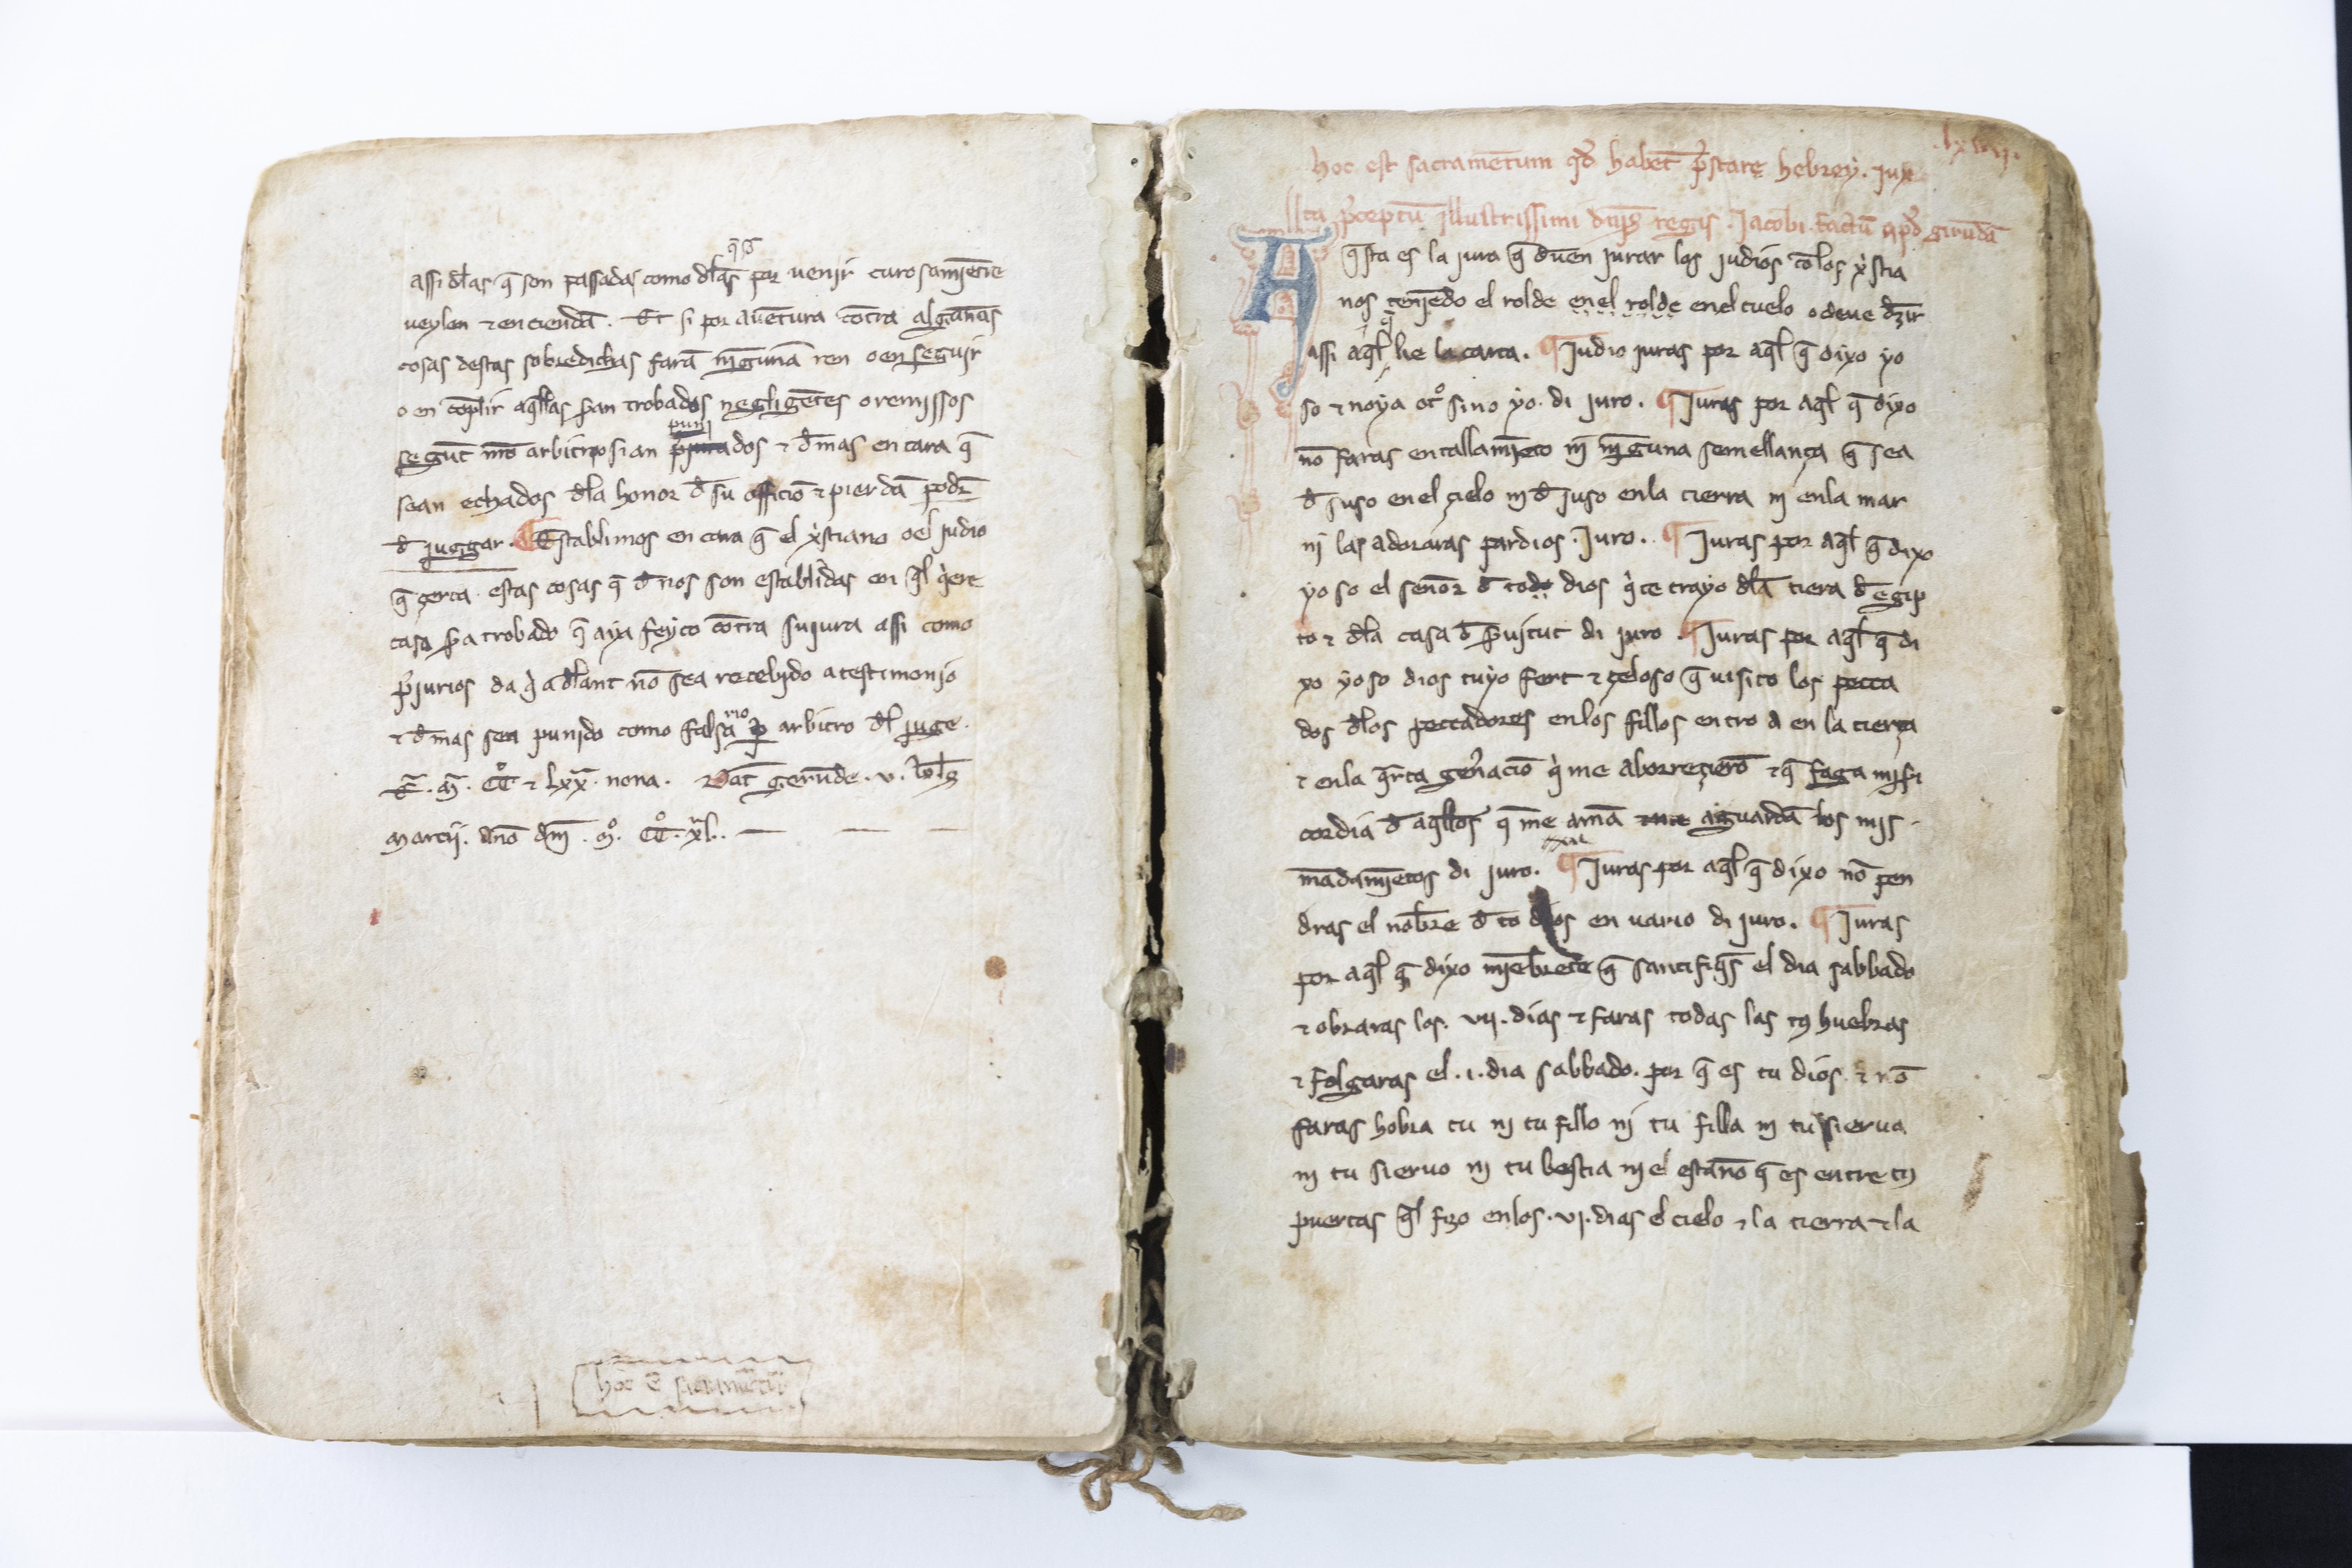 q̄ s̄
assi dl̄as q̄ son passadas como dl̄as por venir curosamient̄re
veylen ⁊ enciendā. Et si por auētura cōtra algunās
cosas destas sobredichas farā nīgunā ren o en seguir
o en cōplir aq̄llas s̄ran trobados negligētes o remissos
puni
segūt nr̄o arbitrio sian p̄jurados ⁊ d̄mas en cara q̄
sean echados dl̄a honor d̄ su officio ⁊ pierdā pod̄r
d̄ juggar. ¶ Establimos en cara q̄ el x̄stiano o el judio
q̄ çerca estas cosas q̄ d̄ nos son establidas en q̄l q̄ere
casa s̄ra trobado q̄ aya feyto cōtra su jura assi como
p̄jurios da q̄ adl̄ant nō sea recebido a testimonio
rio
⁊ d̄mas sea punido como falsa ꝑ arbitro dl̄ juge.
E. M. CCº ⁊ lxxª nona. Dat̄ gerūde. v. kl̄s
Marcij. Año dn̄i. Mº. CCº. xl.
hoc ē sacramētū
lxviij.
hoc est sacramētum qd̄ habēt p̄stare hebrey. jux
ta p̄ceptū illustrissimi dn̄i regis. Jacobi. factū apd̄ girūdā
Aq̄sta es la jura q̄ d̄uen jurar los judios cō los x̄stia
nos teniēdo el rolde en el rolde en el cuelo o deue dz̄ir
q̄
assi aq̄l lie la carta. ¶ Judio juras por aq̄l q̄ dixo yo
so ⁊ no ya otº sino yo. di juro. ¶ Juras por aq̄l q̄ dixo
nō faras entallamiēto nj nīguna semellança q̄ sea
d̄ suso en el çielo nj d̄ juso en la tierra nj en la mar
nj las adoraras par dios. Juro. ¶ Juras por aq̄l q̄ dixo
yo so el señor d̄ todo dios q̄ te trayo dl̄a tiera d̄ egip
to ⁊ dl̄a casa d̄ s̄uitut di juro. ¶ Juras por aq̄l q̄ di
xo yo so dios tuyo fort ⁊ çeloso q̄ visito los pecca
dos dl̄os peccadores en los fillos entro a en la tierça
⁊ en la q̄rta gen̄acio q̄ me aborreçierō ⁊ q̄ faga misr̄i
cordia d̄ aq̄llos q̄ me amā ⁊ me aguardā los mjs
mādamiētos di juro. ¶ Juras por aq̄l q̄ dixo nō pen
dras el nōbre d̄ to dios en vano di juro. ¶ Juras
por aq̄l q̄ dixo miēbrete q̄ santifiq̄s el dia sabbado
⁊ obraras los. vij. dias ⁊ faras todas las tꝯ huebras
⁊ folgaras el. i. dia sabbado. por q̄ es tu dios ⁊ nō
faras hobra tu nj tu fillo nj tu filla nj tu sierua
nj tu sieruo nj tu bestia nj el estaño q̄ es entre tꝯ
puertas q̄l fizo en los. vj. dias el cielo ⁊ la tierra ⁊ la